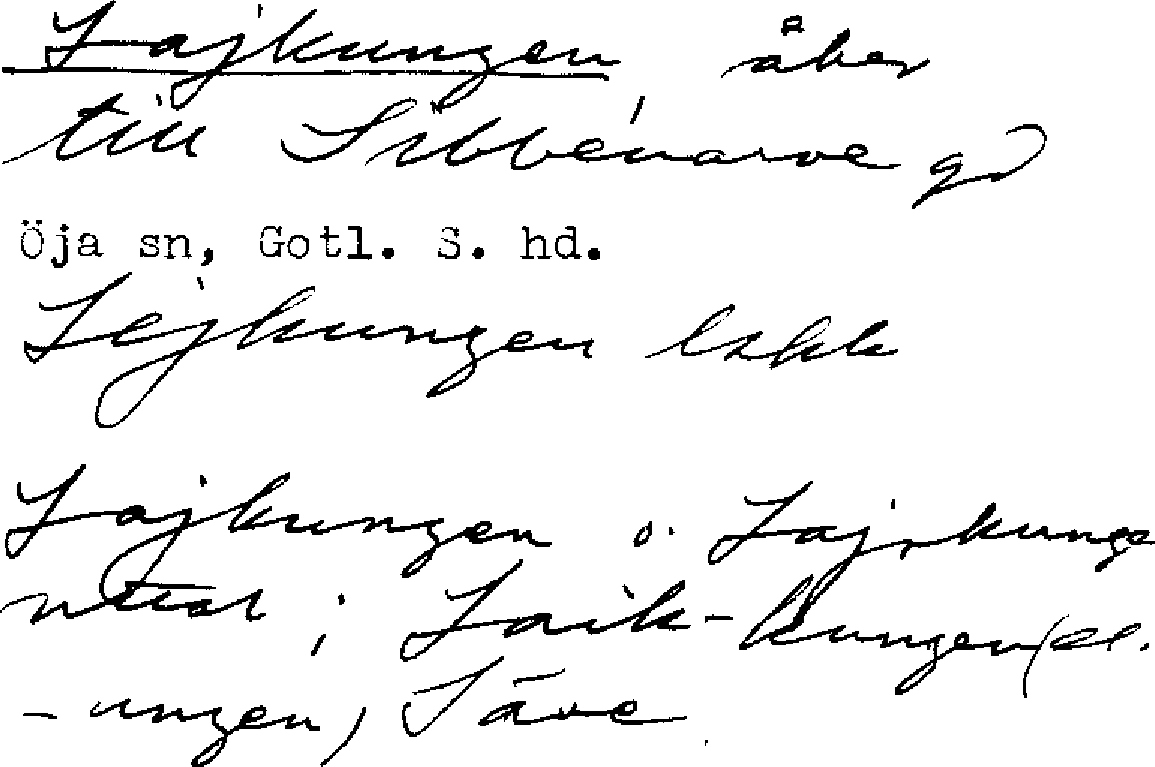 Lajkungen, åker
till Sibbenarve gd
Öja sn, Gotl. S. hd.
Lejkungen
Lajkungen o. Lajskunge
; Laik-kungen (el.
-ungen) Säve